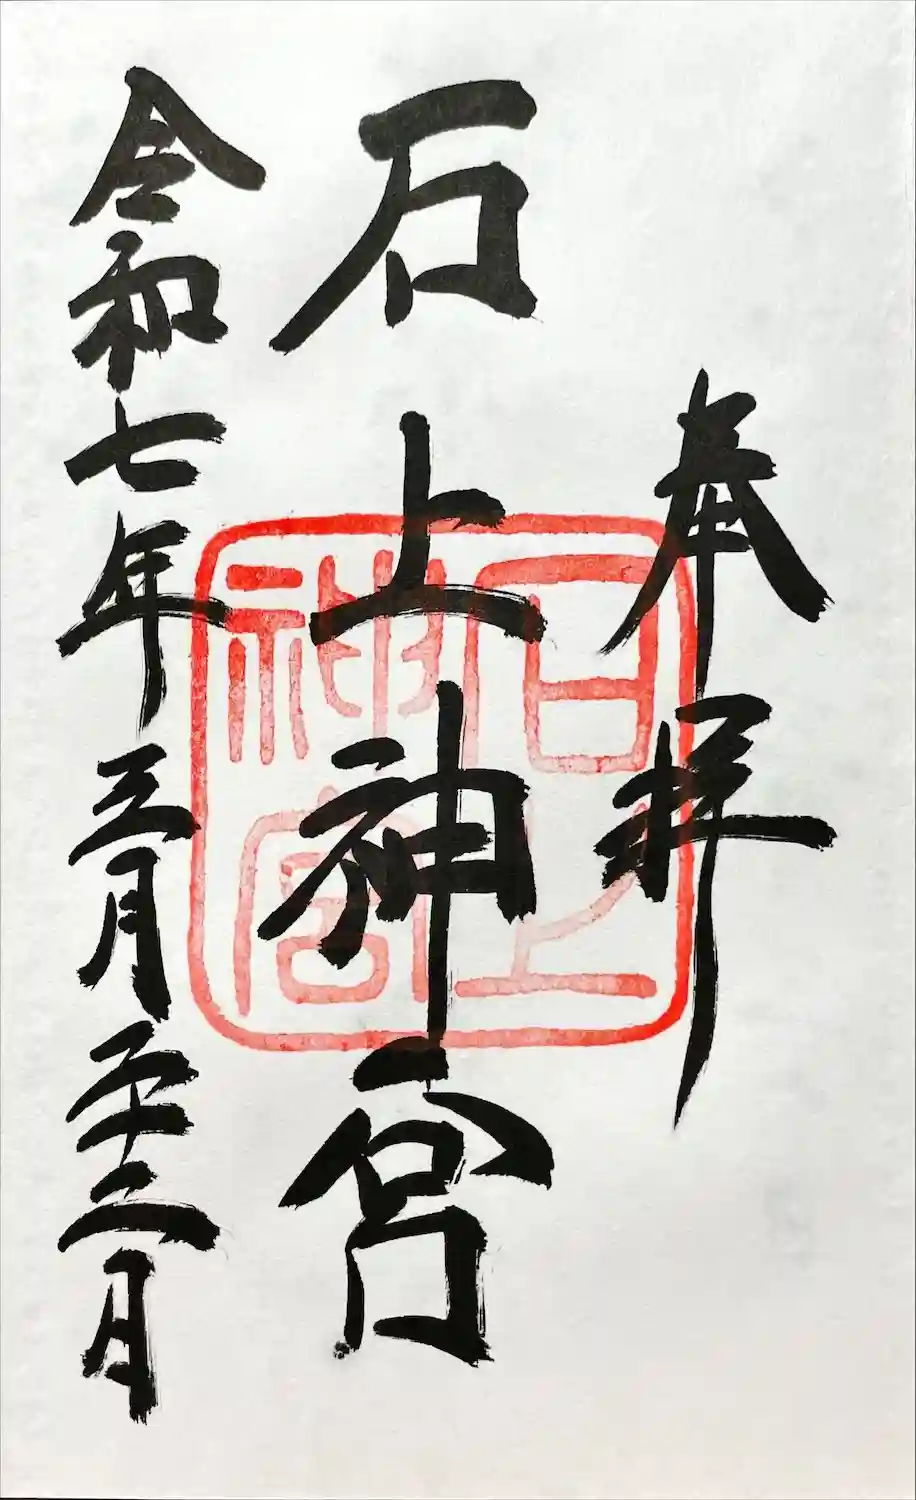 奉拝
石上神宮
石上神宮
令和七年三月二十二日